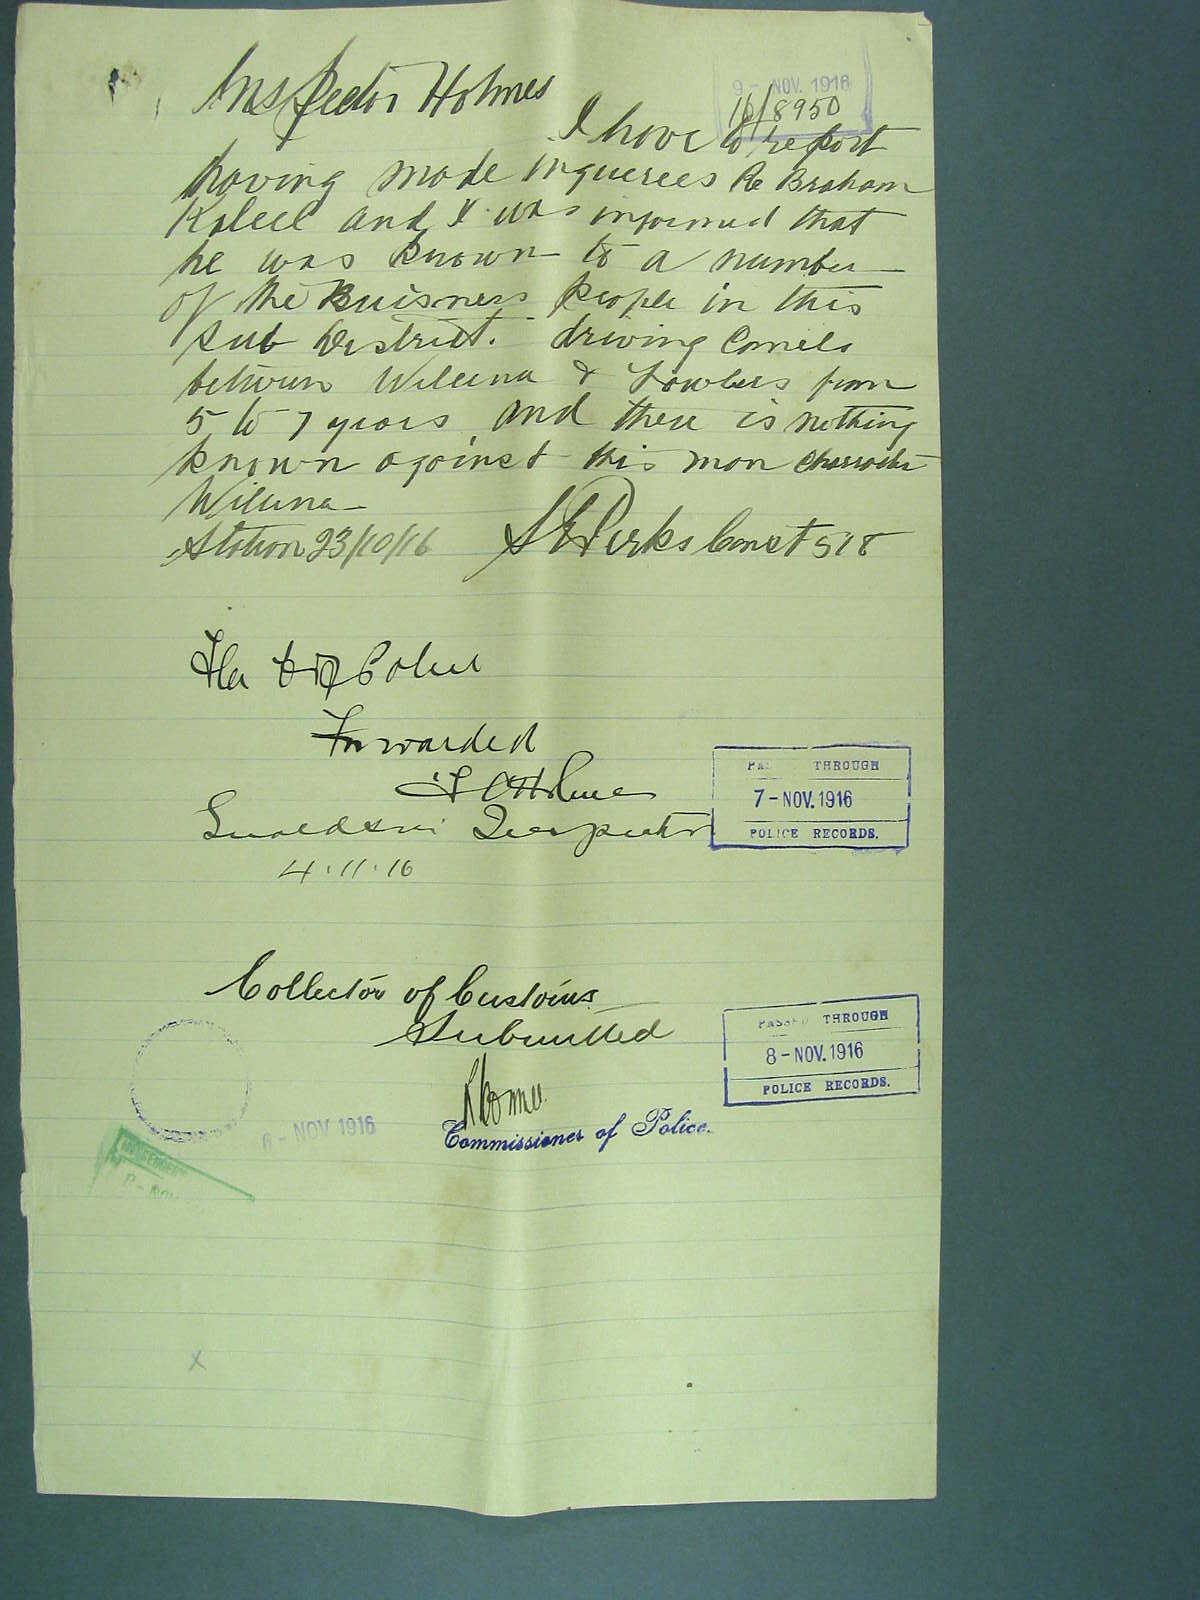 9 - NOV. 1916
16/8950
Inspector Holmes
I have to report
having made inquerees Re Braham
Kaleel and I was informed that
he was known to a number
of the Buisness people in this
Sub District. driving Camels
between Wiluna & Lawlers from
5 to 7 years, and there is nothing
known against this man Charracter
Wiluna
Station 23/10/16 Perks Const 518
The Police
Forwarded
Holmes
Inspector
4.11.16
PA THROUGH
7 - NOV. 1916
POLICE RECORDS.
Collector of Customs
Submitted
PASSED THROUGH
8 - NOV. 1916
POLICE RECORDS.
6 - NOV 1916
Commissioner of Police.
x